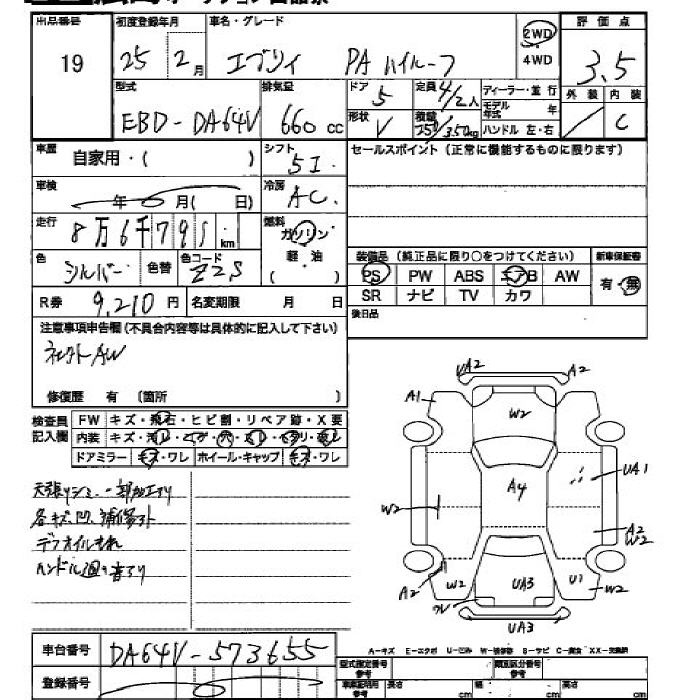 出品番号 19
初度登録年月 25 2月
車名・グレード エブリイ PA ハイルーフ
2WD
4WD
評価点 3.5
外装 内装 C
型式 EBD-DA64V
排気量 660 cc
ドア 5
定員 4/2人
形状 V
積載 250/350kg
ディーラー・並行
モデル年式 年
ハンドル 左・右
車歴 自家用・( )
シフト 5I.
セールスポイント(正常に機能するものに限ります)
車検 年 月( 日)
冷房 AC.
走行 8万6千795 km
燃料 ガソリン
軽油
( )
色 シルバー 色替
色コード Z2S
装備品(純正品に限り○をつけてください)
新車保証書
PS PW ABS エアB AW
有・無
SR ナビ TV カワ
R券 9,210円
名変期限 月 日
後日品
注意事項申告欄(不具合内容等は具体的に記入して下さい)
AW
修復歴 有 (箇所 )
検査員記入欄
FW キズ・飛石・ヒビ割・リペア跡・X要
内装 キズ・汚レ・コゲ・穴・スレ・ヘタリ・劣レ
ドアミラー キズ・ワレ ホイール・キャップ キズ・ワレ
天張りシミ 一部加工有り
各キズ、凹、補修多
デフオイルもれ
ハンドル廻り音有り
UA2
A2
A1
W2
UA1
A4
W2
A2
W2
A2
W2
UA3
U1
W2
ワレ
UA3
A-キズ E-エクボ U-凹み W-補修跡 S-サビ C-腐食 XX-交換済
車台番号 DA64V-573655
登録番号
型式指定番号 参考
類別区分番号 参考
車庫証明用 参考 長さ cm 幅 cm 高さ cm